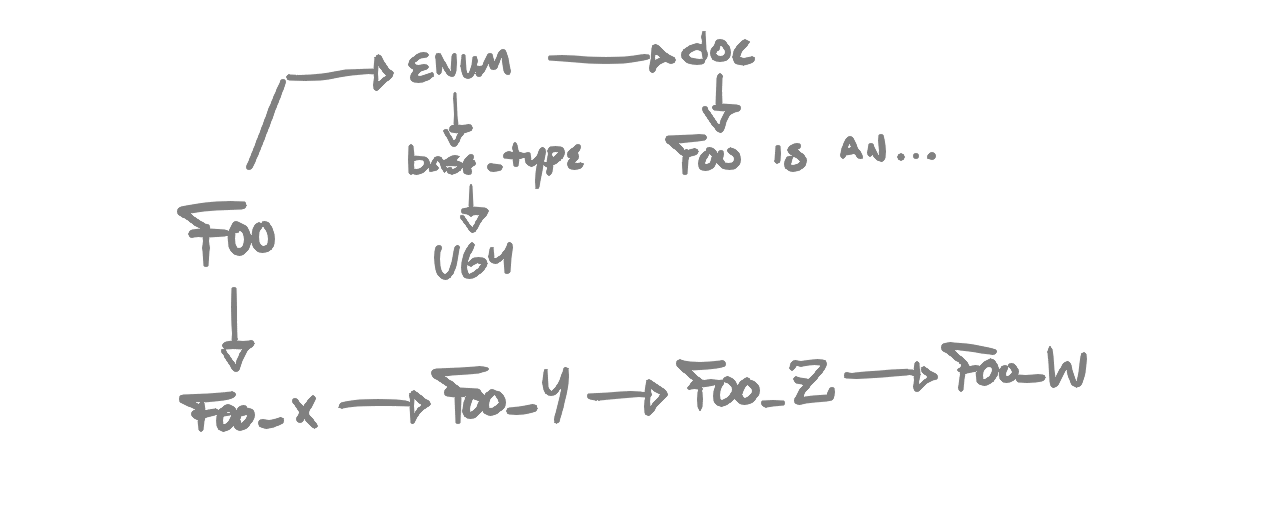 ENUM doc
base_type Foo is AN...
Foo U64
Foo_X Foo_Y Foo_Z Foo_W